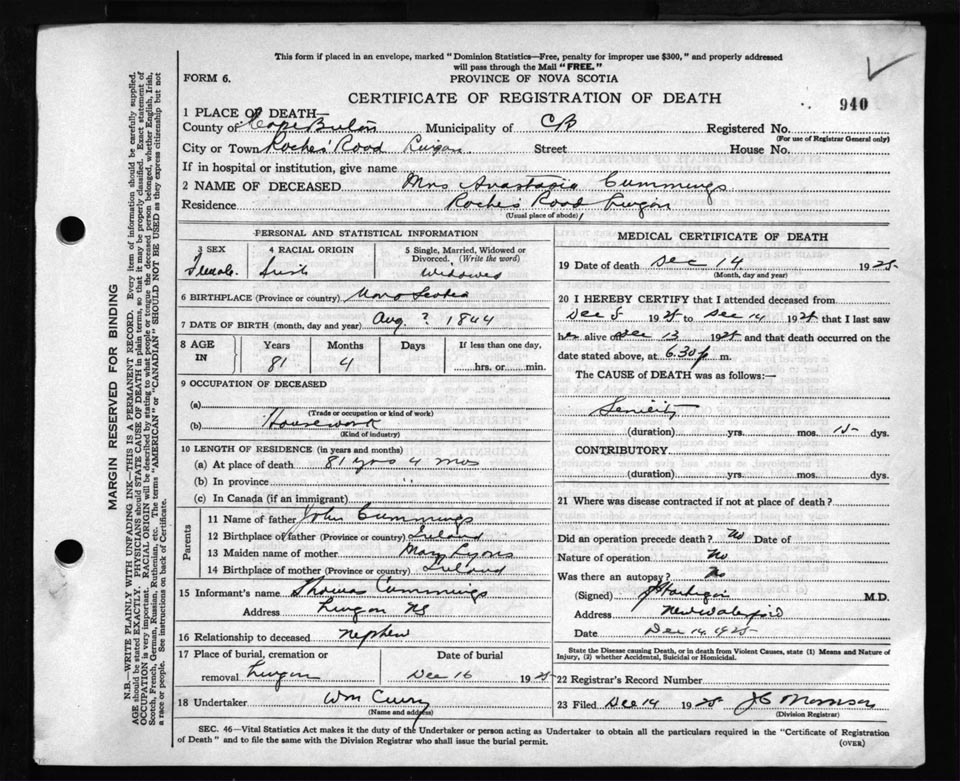 This form if placed in an envelope, marked "Dominion Statistics—Free, penalty for improper use $300," and properly addressed
will pass through the Mail "FREE."
FORM 6.
PROVINCE OF NOVA SCOTIA
CERTIFICATE OF REGISTRATION OF DEATH
940
1 PLACE OF DEATH—
County of Cape Breton Municipality of CB Registered No.
(For use of Registrar General only)
City or Town Roche's Road Lingan Street House No.
If in hospital or institution, give name
2 NAME OF DECEASED Mrs Anastasia Cummings
Residence Roche's Road Lingan
(Usual place of abode)
PERSONAL AND STATISTICAL INFORMATION
3 SEX 4 RACIAL ORIGIN 5 Single, Married, Widowed or
Divorced. (Write the word)
Female Irish Widowed
6 BIRTHPLACE (Province or country) Nova Scotia
7 DATE OF BIRTH (month, day and year) Aug ? 1844
8 AGE IN Years Months Days If less than one day,
81 4 hrs. or min.
9 OCCUPATION OF DECEASED
(a)
(Trade or occupation or kind of work)
(b) Housework
(Kind of industry)
10 LENGTH OF RESIDENCE (in years and months)
(a) At place of death 81 yrs 4 mos
(b) In province " "
(c) In Canada (if an immigrant)
Parents
11 Name of father John Cummings
12 Birthplace of father (Province or country) Ireland
13 Maiden name of mother Mary Lyons
14 Birthplace of mother (Province or country) Ireland
15 Informant's name Thomas Cummings
Address Lingan NS
16 Relationship to deceased nephew
17 Place of burial, cremation or Date of burial
removal Lingan Dec 16 1925
18 Undertaker Wm Curry
(Name and address)
MEDICAL CERTIFICATE OF DEATH
19 Date of death Dec 14 1925
(Month, day and year)
20 I HEREBY CERTIFY that I attended deceased from
Dec 5 1925 to Dec 14 1925 that I last saw
her alive on Dec 13 1925 and that death occurred on the
date stated above, at 6.30 p m.
The CAUSE of DEATH was as follows:—
Senility
(duration) yrs. mos. 15 dys.
CONTRIBUTORY
(duration) yrs. mos. dys.
21 Where was disease contracted if not at place of death?
Did an operation precede death? No Date of
Nature of operation No
Was there an autopsy? No
(Signed) M.D.
Address New Waterford
Date Dec 14, 1925
State the Disease causing Death, or in death from Violent Causes, state (1) Means and Nature of
Injury, (2) whether Accidental, Suicidal or Homicidal.
22 Registrar's Record Number
23 Filed Dec 14 1925 J C Morrison
(Division Registrar)
SEC. 46—Vital Statistics Act makes it the duty of the Undertaker or person acting as Undertaker to obtain all the particulars required in the "Certificate of Registration
of Death" and to file the same with the Division Registrar who shall issue the burial permit.
(OVER)
MARGIN RESERVED FOR BINDING
N.B.—WRITE PLAINLY WITH UNFADING INK—THIS IS A PERMANENT RECORD. Every item of information should be carefully supplied.
AGE should be stated EXACTLY. PHYSICIANS should STATE CAUSE OF DEATH in plain terms, so that it may be properly classified. Exact statement of
OCCUPATION is very important. RACIAL ORIGIN will be described by stating to what people or tongue the deceased person belonged, whether English, Irish,
Scotch, French, German, Russian, Ruthenian, etc. The terms "AMERICAN" or "CANADIAN" SHOULD NOT BE USED as they express citizenship but not
a race or people. See instructions on back of Certificate.